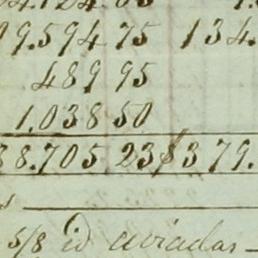 4.124 63 1.
9.594 75 134.
489 95
1.038 50
38.705 23 $379.
5/8 id aviadas